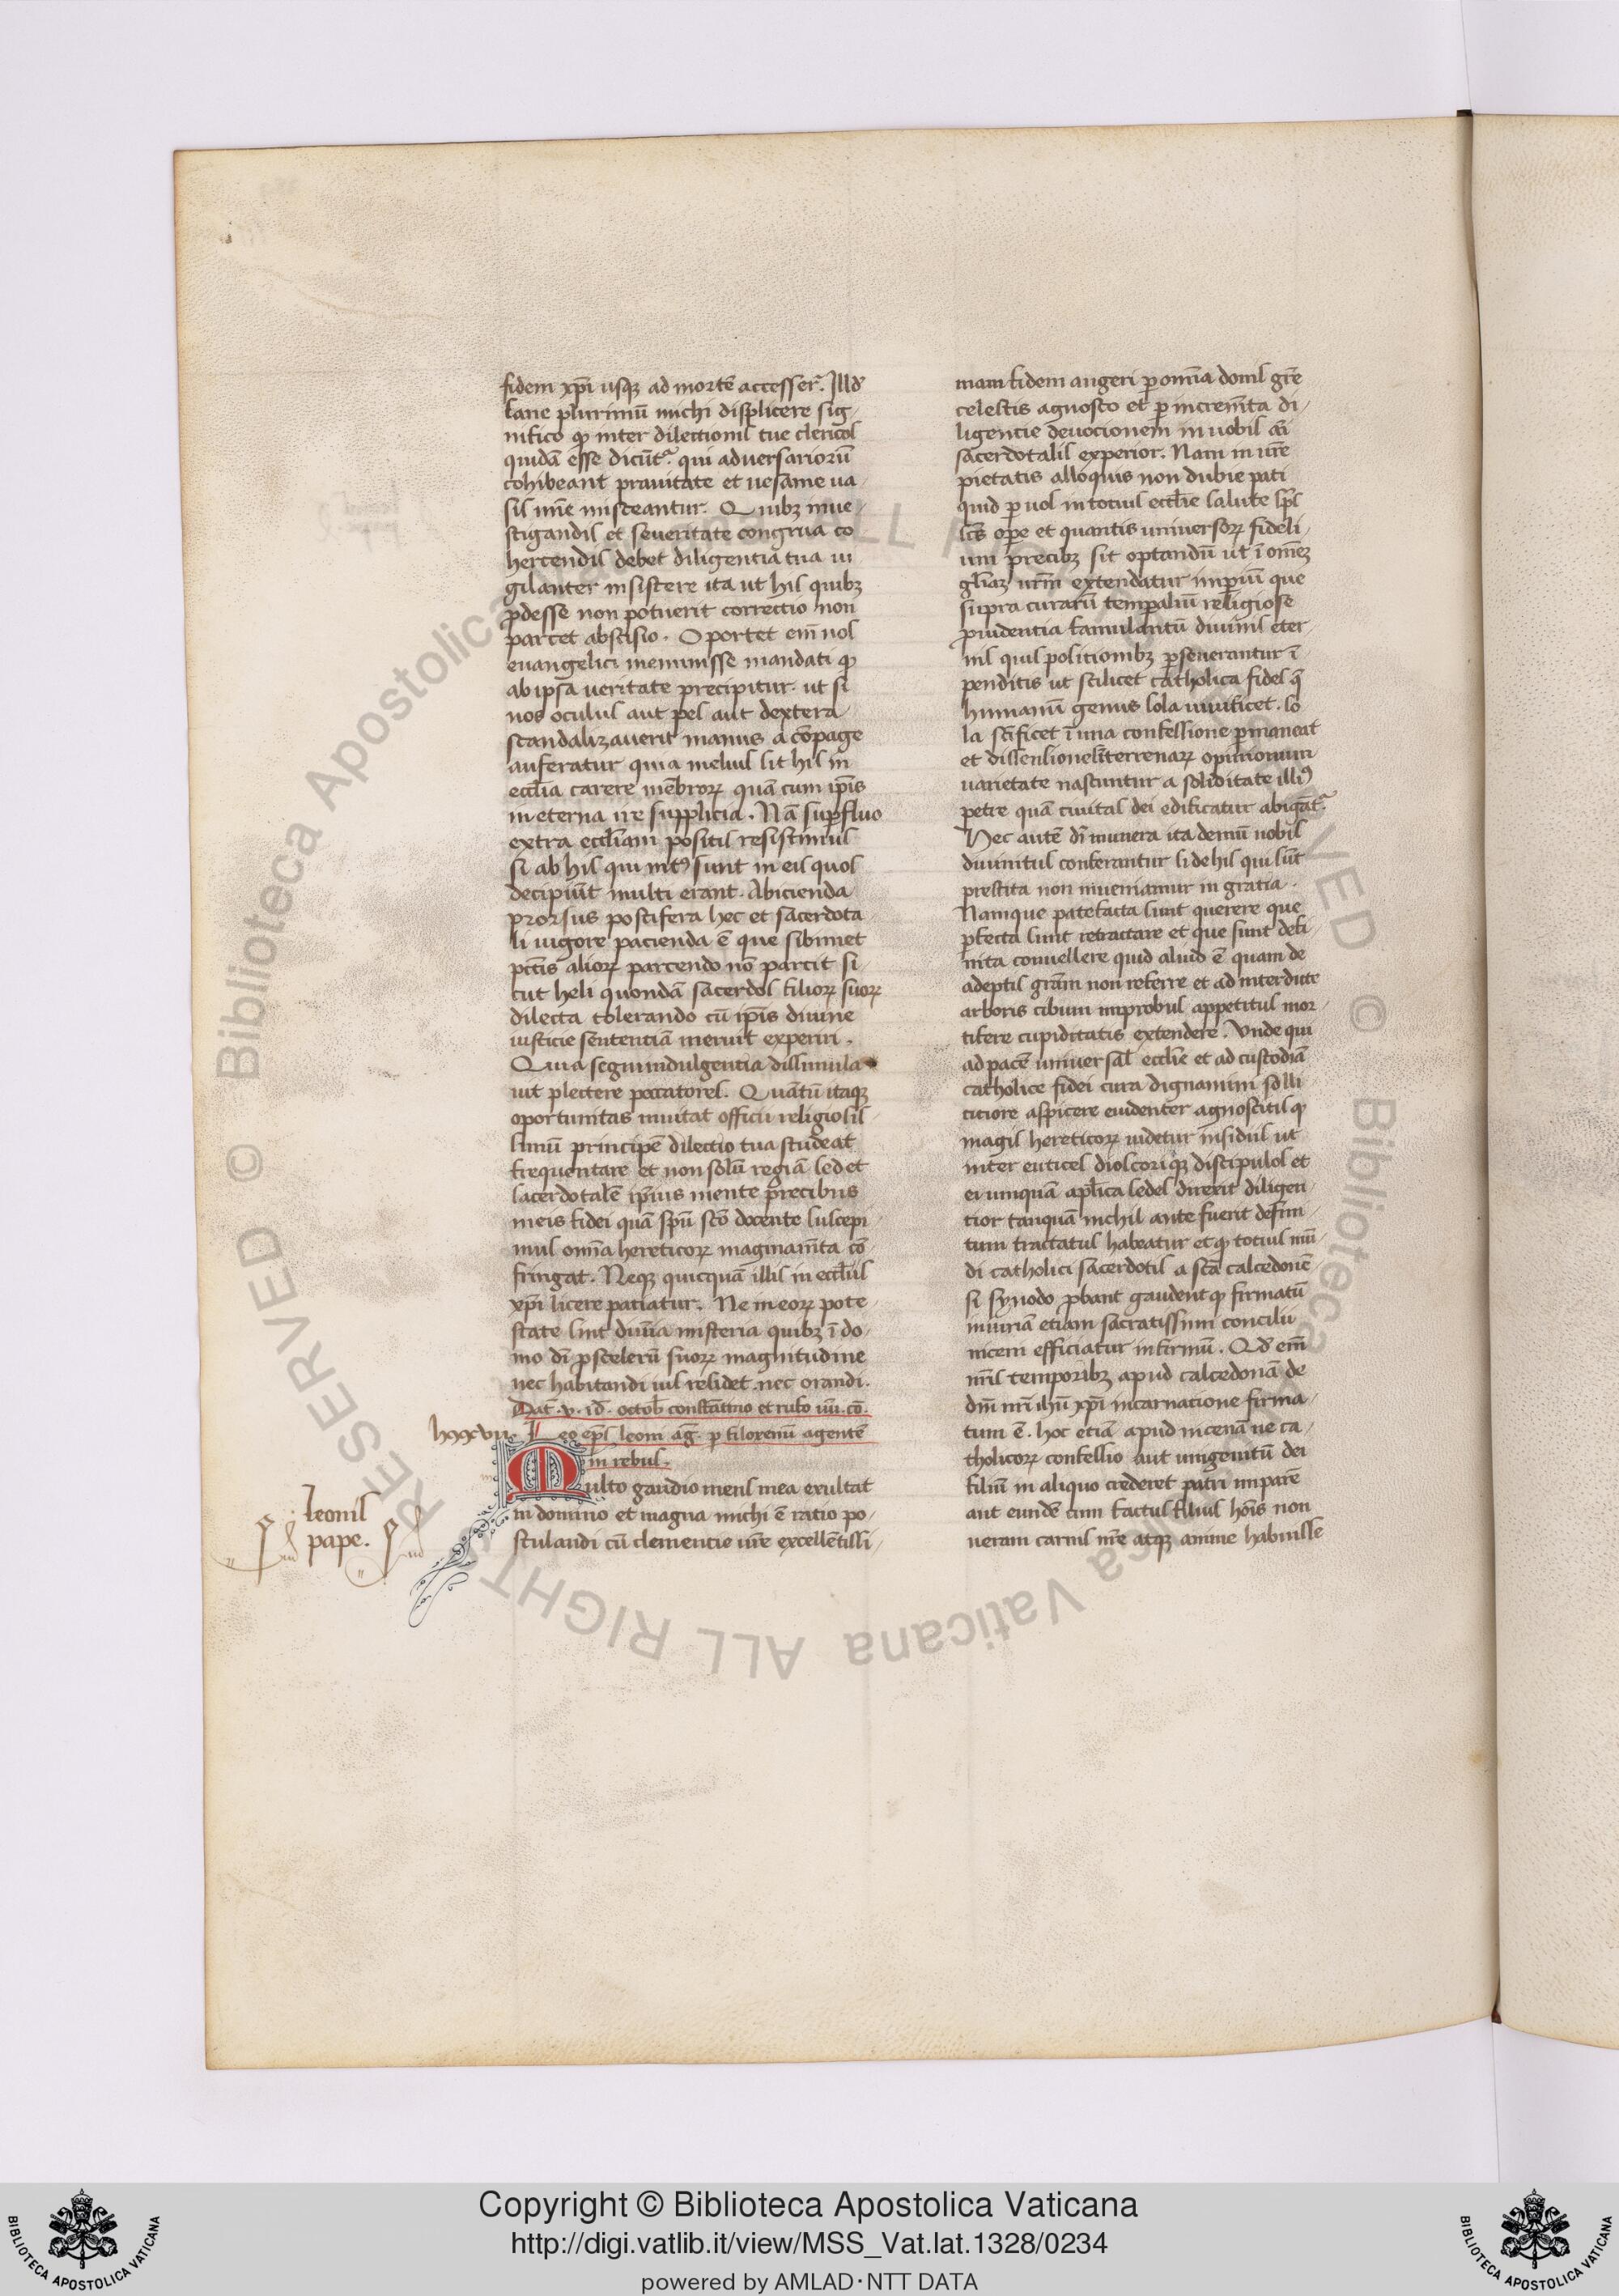 fidem xp̄i usqꝫ ad mortē accesser̄. Illd̄
sane plurimū michi displicere sig-
nifico qꝫ inter dilectionis tue clericos
quidā esse dicūt᷑ qui adversariorū
cohibeant pravitate et vesanie va-
sis inīe misceantur. Quibꝫ inve-
stigandis et severitate congrua co-
hercendis debet diligentia tua vi
gilanter insistere ita ut his quibꝫ
ꝓdesse non potuerit correctio non
parcet abscisio. Oportet em̄ nos
euangelici meminisse mandati qꝫ
ab ipsa veritate precipitur. ut si
nos oculus aut pes aut dextera
scandalizaverit manus a cōpage
auferatur quia melius sit his in
eccl̄ia carere mēbroꝝ quā cum ip̄is
in eterna ire supplicia. Nā suꝑfluo
extra eccl̄iam positis resistimus
si ab his qui intꝰ sunt in eis quos
decipiūt multi erant. Abicienda
prorsus postifera hec et sacerdota
li vigore pacienda ē que sibimet
pctīs alioꝝ parcendo nō parcit si-
cut heli quondā sacerdos filioꝝ suoꝝ
dilecta tolerando cū ip̄is divine
iusticie sententiā meruit experiri.
Quia segni indulgentia dissimula
vit plectere peccatores. Quātū itaqꝫ
oportunitas invitat officii religiosis-
simū principē dilectio tua studeat
frequentare et non solū regiā sed et
sacerdotalē ip̄ius mente precibus
meis fidei quā sp̄u sc̄o docente suscepi
mus omīa hereticoꝝ maginam̄ta cō-
fringat. Neqꝫ quicquā illis in eccl̄iis
xp̄i licere patiatur. Ne in eoꝝ pote-
state sint divīa misteria quibꝫ ī do-
mo dī ꝑ scelerū suoꝝ magnitudine
nec habitandi ius residet. nec orandi.
Dat̄. v. id̄. octob̄ constātino et rufo vu̅. co̅.
lxxxvii. Leo ep̄s leoni ag̅. ꝑ filorenū agentē
in rebus.
Multo gaudio mens mea exultat
in domino et magna michi ē ratio po-
stulandi cū clementie vr̄e excellētissi-
Leonis
pape.
mam fidem augeri ꝑ omīa donis gr̄e
celestis agnosco et ꝑ increm̄ta di-
ligencie devocionem in vobis ai̅
sacerdotalis experior. Nam in vr̄e
pietatis alloquiis non dubie pati
quid ꝑ vos in totius eccl̄ie salute sp̄s
sc̄s ope et quantis universoꝝ fideli-
um precibꝫ sit optandū ut ī omēꝫ
gl̄iaꝫ vr̄m extendatur imꝑiū que
supra curarū temꝑaliū religiose
prudentia famulantū divinis eter-
nis quis positionibꝫ ꝑseverantur ī
penditis ut scilicet catholica fides q̄
humanū genus sola vivificet. so
la sc̄ificet ī una confessione ꝑmaneat
et dissensiones terrenaꝝ opinionum
varietate nascuntur a soliditate illiꝰ
petre quā civitas dei edificatur abigāt᷑
Hec autē dī munera ita demū nobis
divinitus conferantur si de his qui sūt
prestita non inveniamur in gratia.
Namque patefacta sunt querere que
ꝑfecta sunt retractare et que sunt defi-
nita convellere quid aliud ē quam de
adeptis grām non referre et ad interdicte
arboris cibum improbus appetitus mor-
tifere cupiditatis extendere. Unde qui
ad pacē universal̄ eccl̄ie et ad custodiā
catholice fidei cura dignamini solli
citiore aspicere evidenter agnoscitis qꝫ
magis hereticoꝝ videtur insidiis ut
inter eutices dioscoriqꝫ discipulos et
ei umquā apl̄ica sedes direxit diligen-
tior tanquā nichil ante fuerit defini-
tum tractatus habeatur et qꝫ totius mū-
di catholici sacerdotis a sc̄a calcedonē-
si synodo ꝓbant gaudentqꝫ firmatū
iniuriā etiam sacratissimi concilii
niceni efficiatur infirmū. Qd̄ em̄
nr̄is temporibꝫ apud calcedonā de
dn̄i nr̄i ih̄u xp̄i incarnatione firma-
tum ē. hoc etiā apud nicenā ne ca-
tholicoꝝ confessio aut unigenitū dei
filiū in aliquo crederet patri imparē
aut eundē cum factus filius hoīs non
veram carnis nr̄e atqꝫ anime habuisse
Copyright © Biblioteca Apostolica Vaticana
http://digi.vatlib.it/view/MSS_Vat.lat.1328/0234
powered by AMLAD·NTT DATA